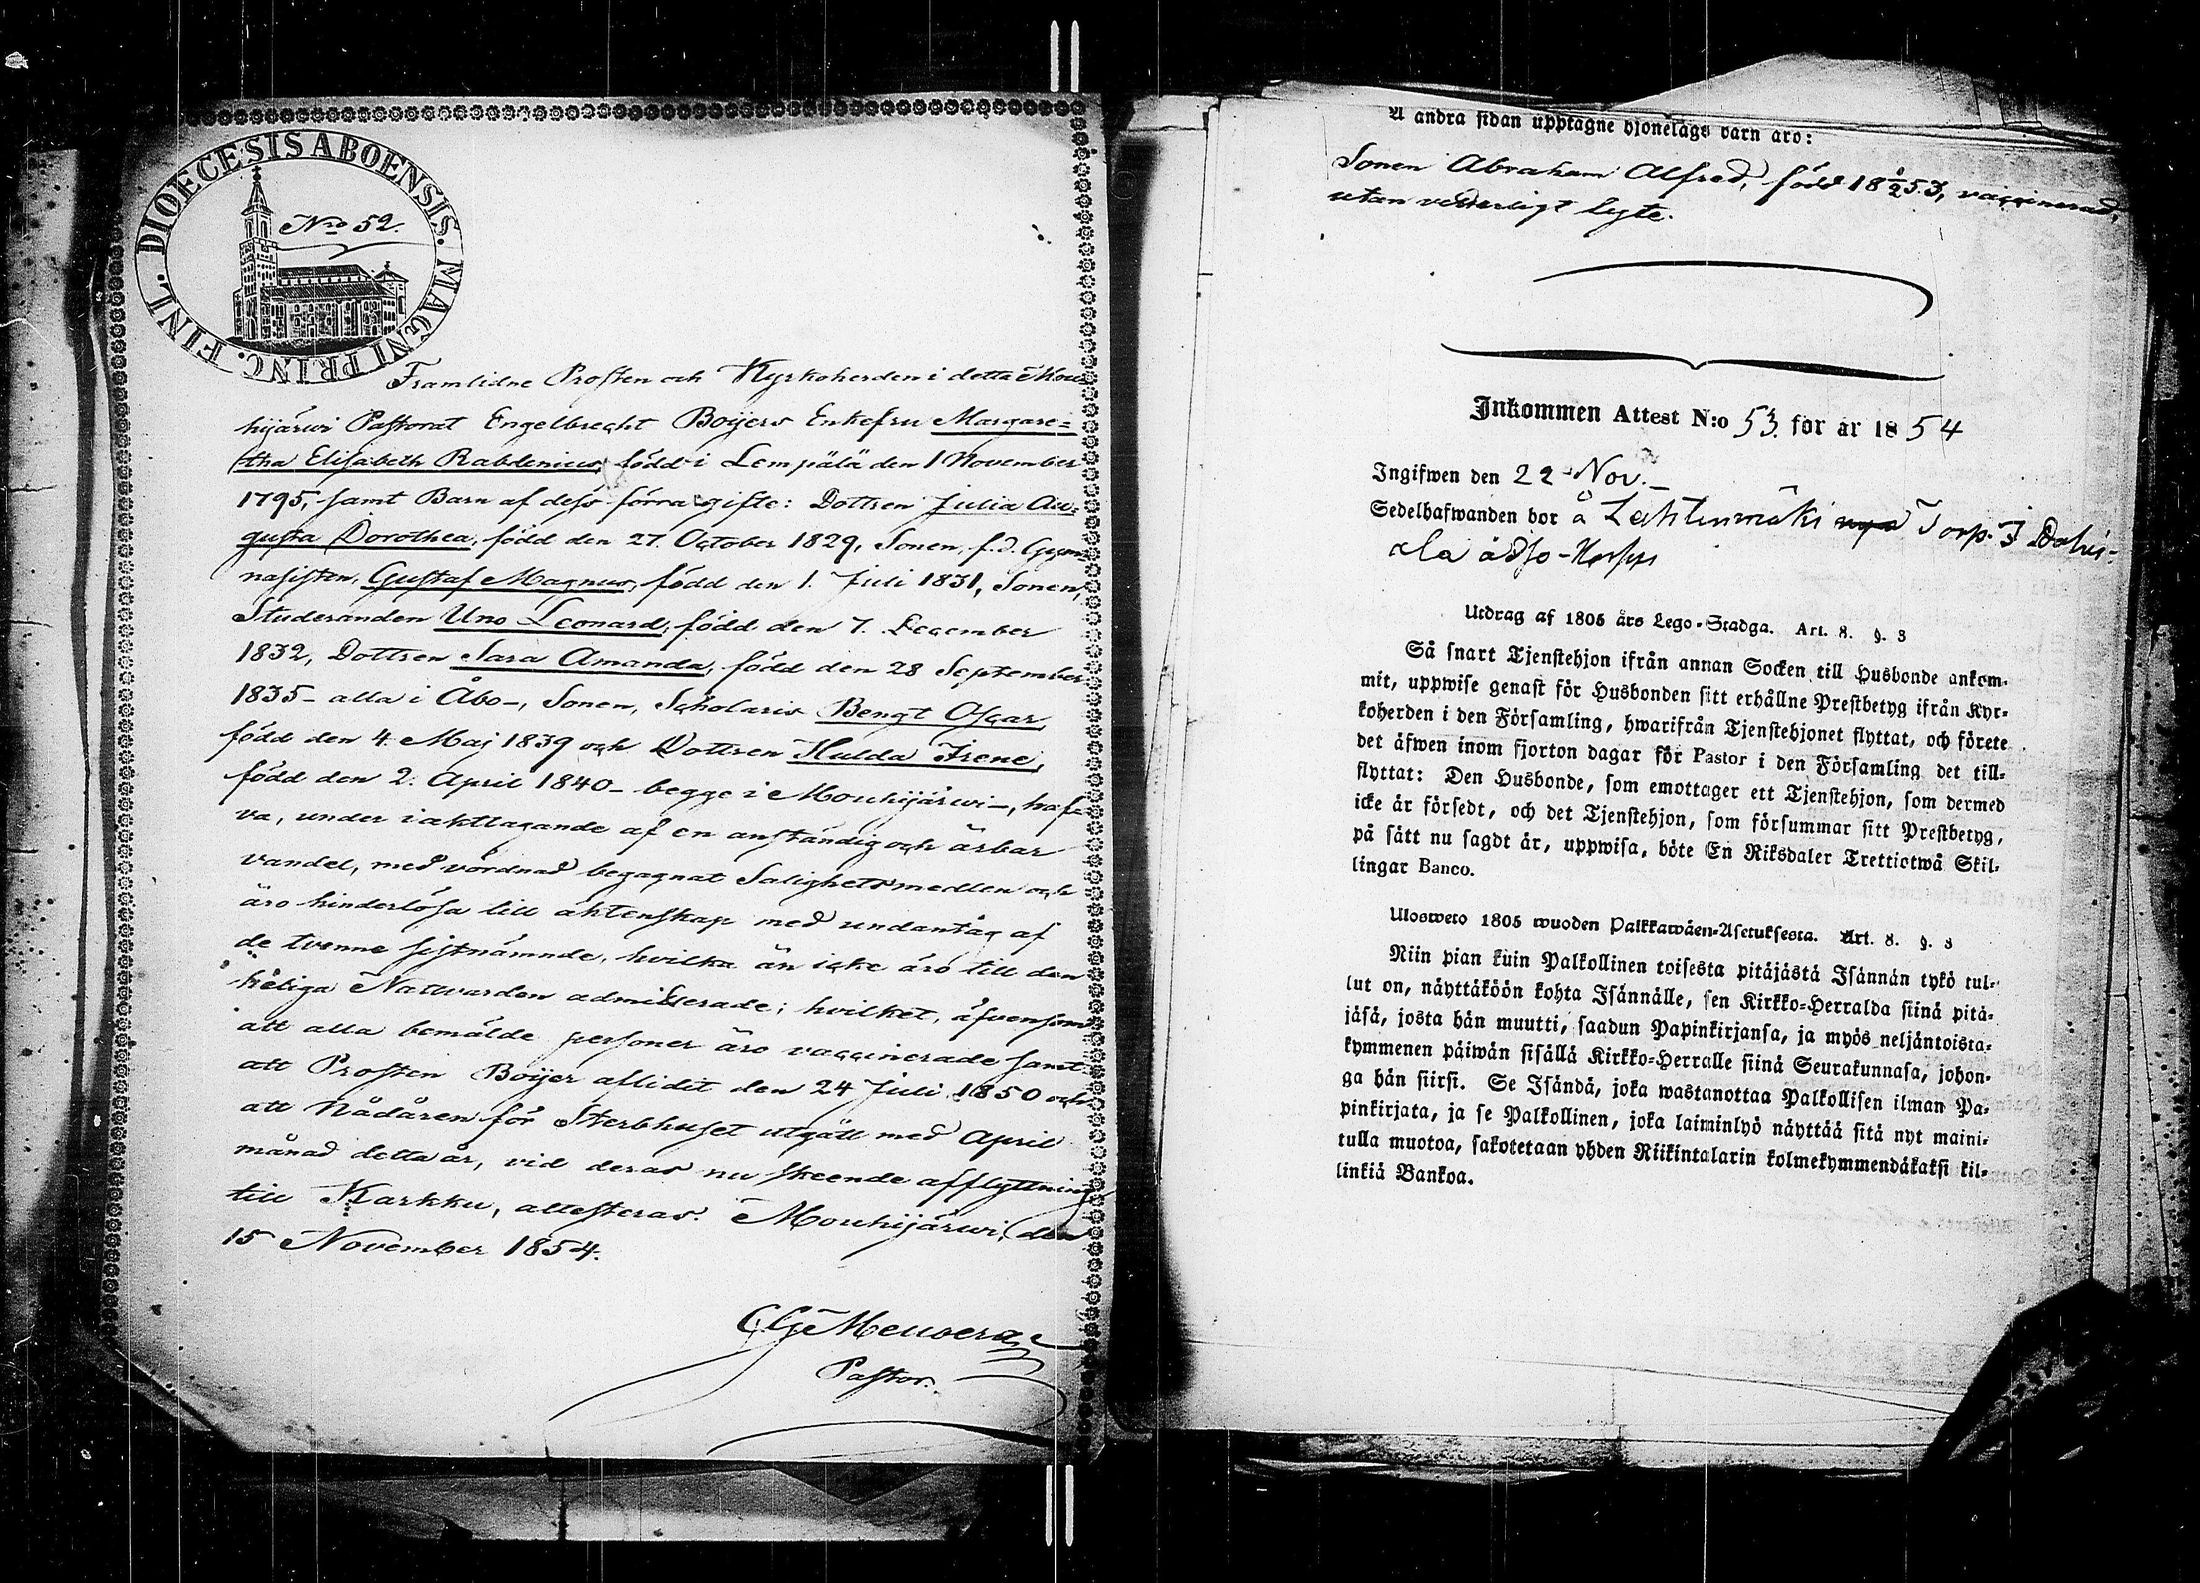 DIOECESIS ABOENSIS. MAGNI PRINC. FINL.
Nro 52.
Framlidne Prosten och Kyrkoherden i detta Mou-
hijärwi Pastorat Engelbrecht Boijers Enkefru Margare-
tha Elisabeth Rabdenius, född i Lempälä den 1 November
1795, samt Barn af dess förra gifte: Dottren Julia Au-
gusta Dorothea, född den 27. October 1829, Sonen, f.d. Gym-
nasisten, Gustaf Magnus, född den 1. Juli 1831, Sonen,
Studeranden Uno Leonard, född den 7. December
1832, Dottren Sara Amanda, född den 28 September
1835 – alla i Åbo –, Sonen, Scholaris Bengt Oscar,
född den 4. Maj 1839 och Dottren Hulda Irene,
född den 2. April 1840 – begge i Mouhijärwi –, haf-
va, under iakttagande af en anständig och ärbar
vandel, med vördnad begagnat Salighetsmedlen och
äro hinderlösa till äktenskap med undantag af
de tvenne sistnämnde, hvilka än icke äro till den
heliga Nattvarden admitterade; hvilket, äfvensom
att alla bemälde personer äro vaccinerade samt
att Prosten Boijer aflidit den 24 Juli 1850 och
att Nådåren för Sterbhuset utgått med April
månad detta år, vid deras nu skeende afflyttning
till Karkku, attesteras. Mouhijärwi, den
15 November 1854.
Pastor.
Å andra sidan upptagne hjonelags barn äro:
Sonen Abraham Alfred, född 18 53, vaccinerad,
utan vederligt lyte.
Inkommen Attest N:o 53. för år 1854
Ingifwen den 22 Nov.
Sedelhafwanden bor å Lahtenmäki Torp. I
Utdrag af 1805 års Lego-Stadga. Art. 8. §. 3
Så snart Tjenstehjon ifrån annan Socken till Husbonde ankom-
mit, uppwise genast för Husbonden sitt erhållne Prestbetyg ifrån Kyr-
koherden i den Församling, hwarifrån Tjenstehjonet flyttat, och förete
det äfwen inom fjorton dagar för Pastor i den Församling det till-
flyttat: Den Husbonde, som emottager ett Tjenstehjon, som dermed
icke är försedt, och det Tjenstehjon, som försummar sitt Prestbetyg,
på sätt nu sagdt är, uppwisa, böte En Riksdaler Trettiotwå Skil-
lingar Banco.
Ulosweto 1805 wuoden Palkkawäen-Asetuksesta. Art. 8. §. 3
Niin pian kuin Palkollinen toisesta pitäjästä Isännän tykö tul-
lut on, näyttäköön kohta Isännälle, sen Kirkko-Herralda siinä pitä-
jäsä, josta hän muutti, saadun Papinkirjansa, ja myös neljäntoista-
kymmenen päiwän sisällä Kirkko-Herralle siinä Seurakunnasa, johon-
ga hän siirsi. Se Isändä, joka wastanottaa Palkollisen ilman Pa-
pinkirjata, ja se Palkollinen, joka laiminlyö näyttää sitä nyt maini-
tulla muotoa, sakotetaan yhden Riikintalarin kolmekymmendäkaksi kil-
linkiä Bankoa.